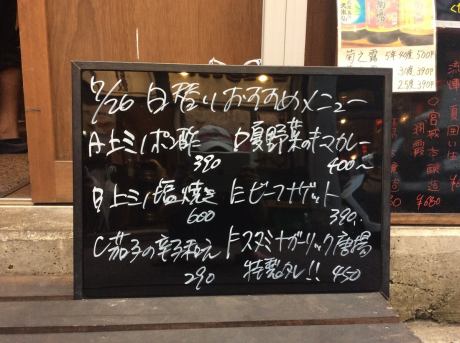 7/26 日替りおすすめメニュー
A上ミノポン酢
390
B上ミノ塩焼き
600
C茄子の辛子和え
290
D夏野菜のキーマカレー
400〜
Eビーフナゲット
390.
Fスタミナガーリック唐揚
特製タレ!! 450
菊之露 5年40度500円
30度390円
25度390円